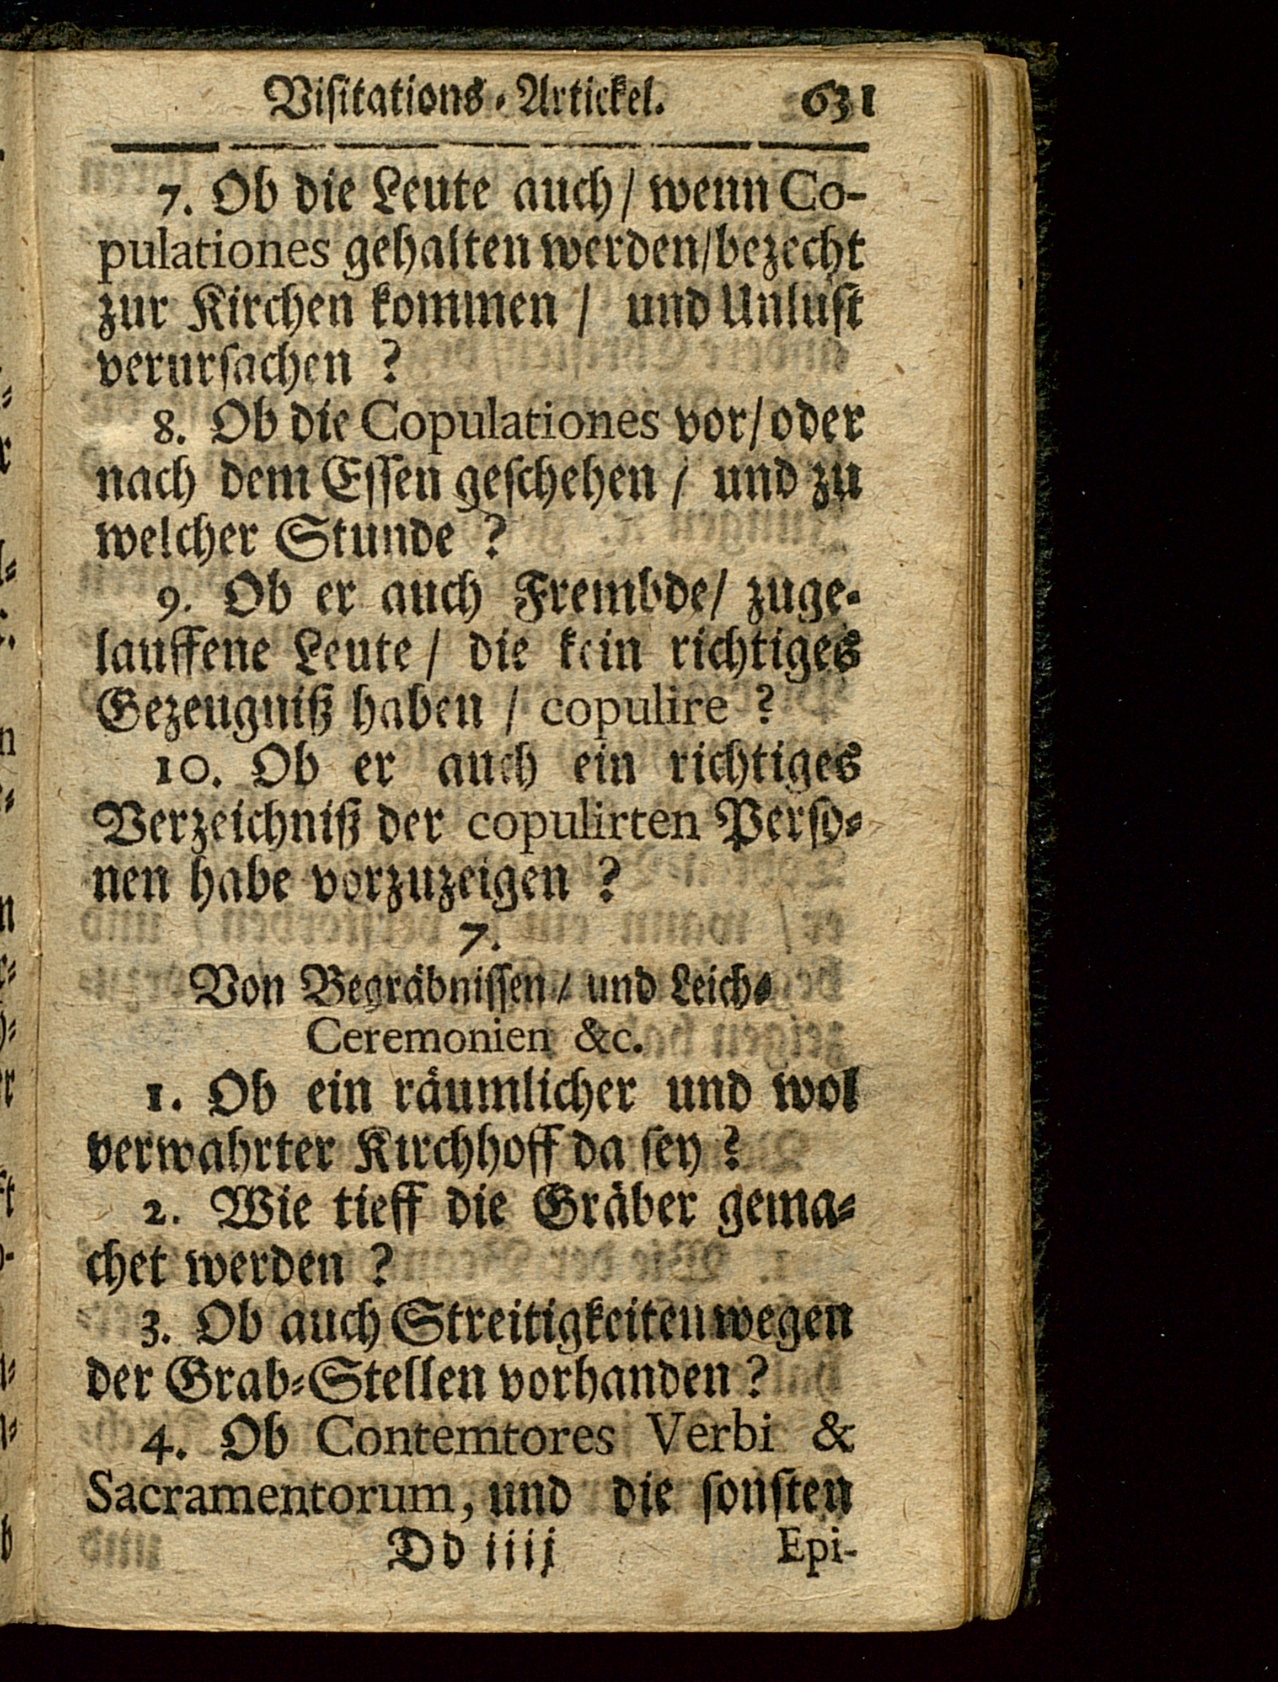 Visitations-Artickel. 631
7. Ob die Leute auch / wenn Co-
pulationes gehalten werden/bezecht
zur Kirchen kommen / und Unlust
verursachen ?
8. Ob die Copulationes vor/oder
nach dem Essen geschehen / und zu
welcher Stunde ?
9. Ob er auch Frembde/ zuge-
lauffene Leute / die kein richtiges
Gezeugniß haben / copulire ?
10. Ob er auch ein richtiges
Verzeichniß der copulirten Perso-
nen habe vorzuzeigen ?
7.
Von Begräbnissen / und Leich-
Ceremonien &c.
1. Ob ein räumlicher und wol
verwahrter Kirchhoff da sey ?
2. Wie tieff die Gräber gema-
chet werden ?
3. Ob auch Streitigkeiten wegen
der Grab-Stellen vorhanden ?
4. Ob Contemtores Verbi &
Sacramentorum, und die sonsten
Dd iiij Epi-